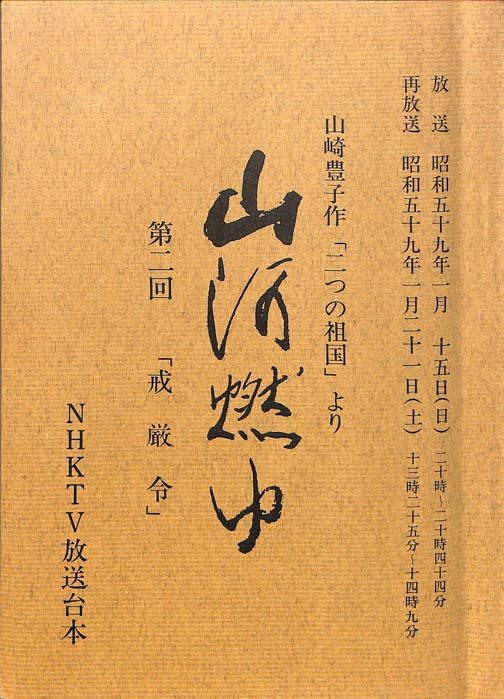 放　送　昭和五十九年一月　十五日(日)　二十時～二十時四十四分
再放送　昭和五十九年一月二十一日(土)　十三時二十五分～十四時九分
山崎豊子作「二つの祖国」より
山河燃ゆ
第二回　「戒厳令」
NHKTV放送台本